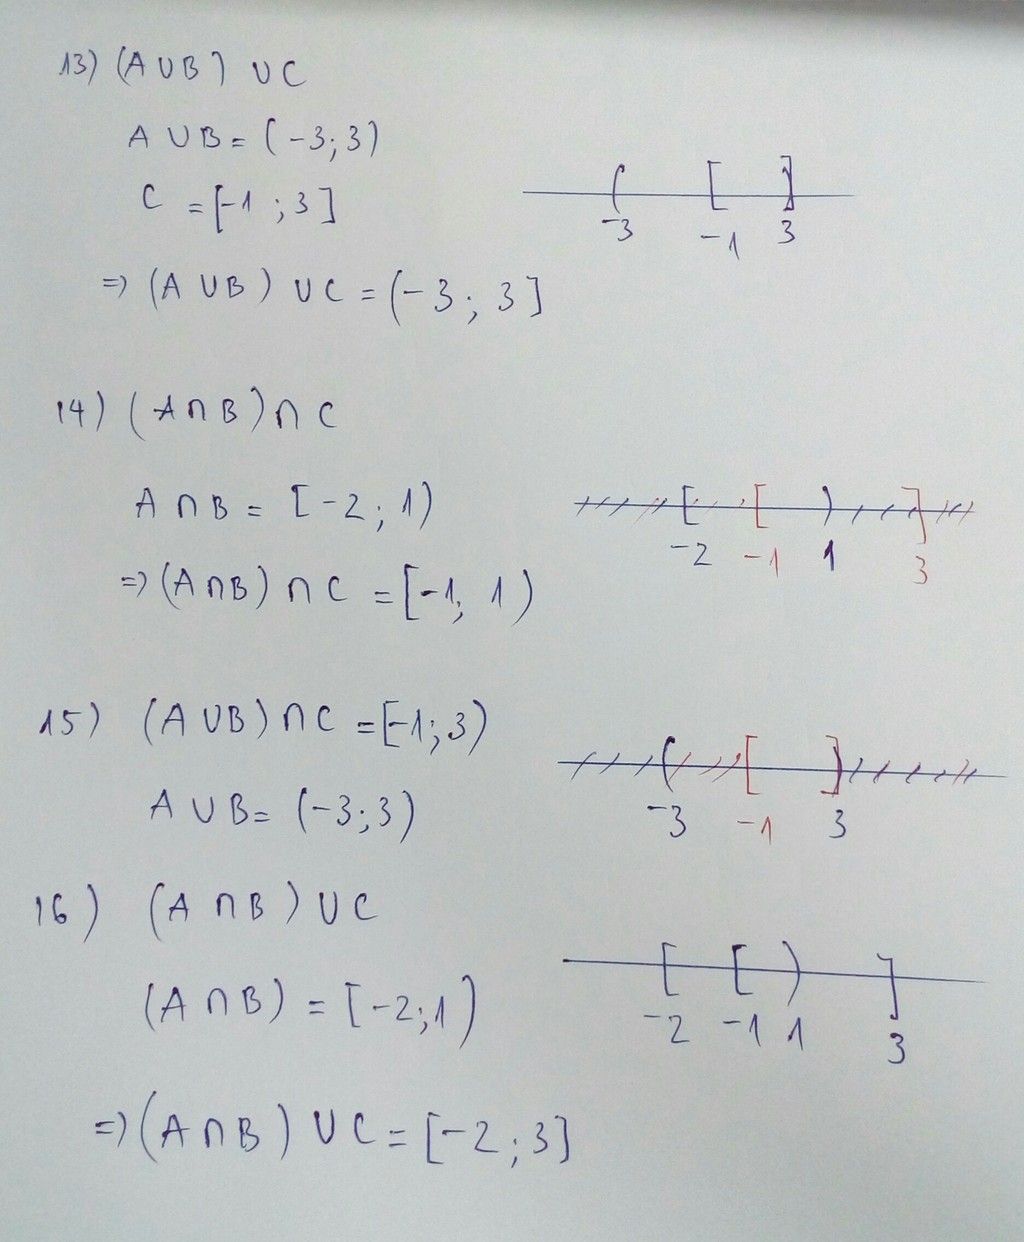 13) (A ∪ B) ∪ C
A ∪ B = (-3; 3)
C = [-1 ; 3]
-3 -1 3
=> (A ∪ B) ∪ C = (-3; 3]
14) (A ∩ B) ∩ C
A ∩ B = [-2; 1)
-2 -1 1 3
=> (A ∩ B) ∩ C = [-1; 1)
15) (A ∪ B) ∩ C = [-1; 3)
A ∪ B = (-3; 3)
-3 -1 3
16) (A ∩ B) ∪ C
(A ∩ B) = [-2; 1)
-2 -1 1 3
=> (A ∩ B) ∪ C = [-2; 3]